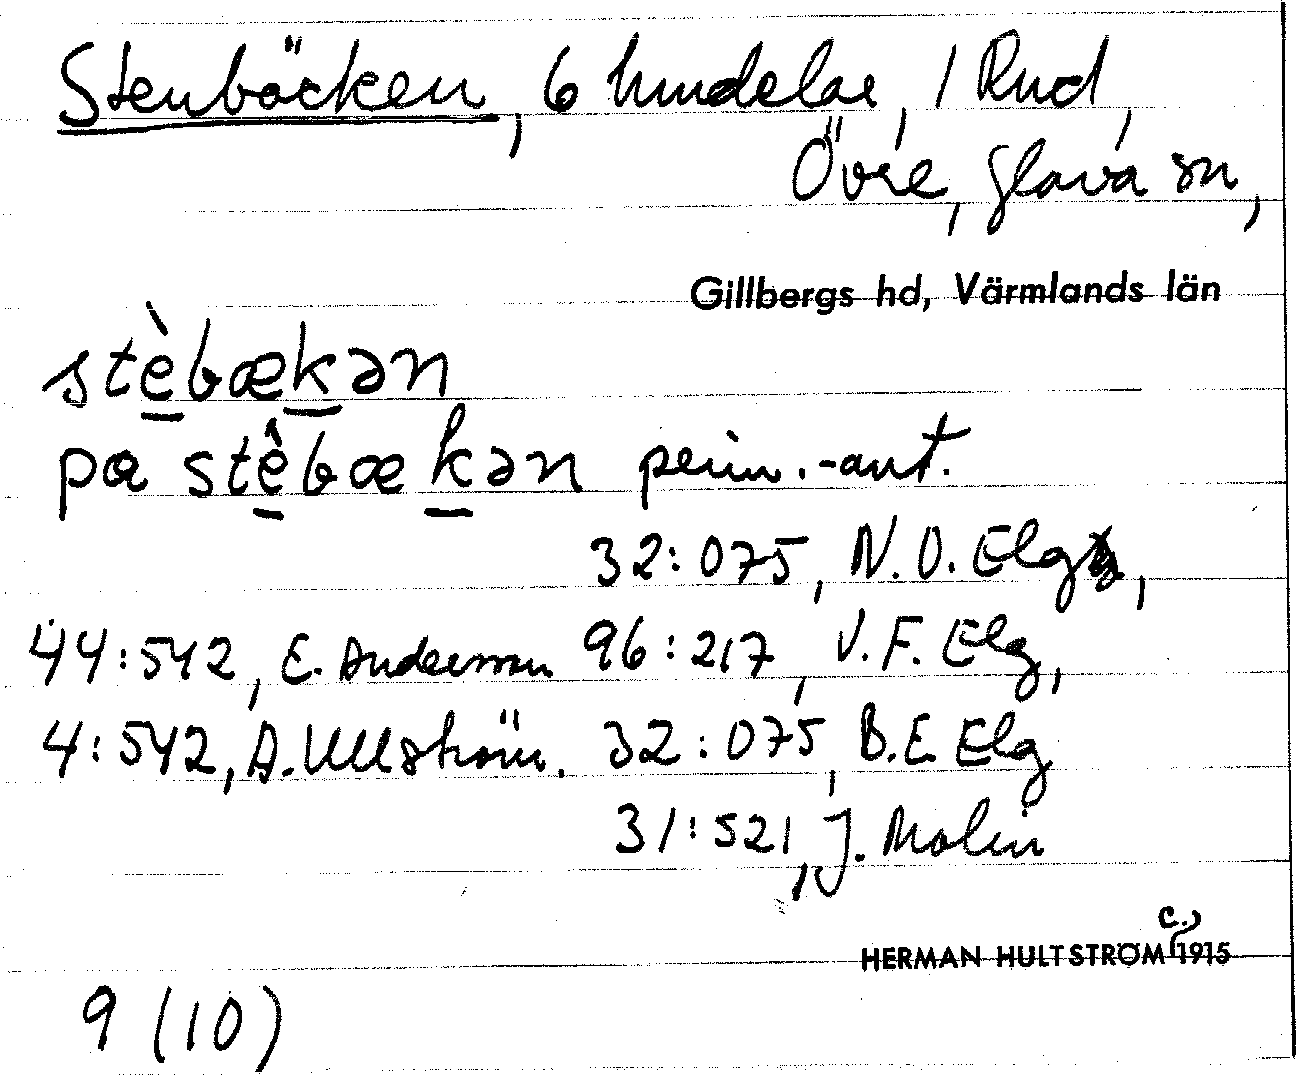 Stenbäcken, 6 hundelar, 1 Rud,
Övre, Glava sn,
Gillbergs hd, Värmlands län
stèbækən
pɑ stèbækən perim.-ant.
32:075, N.O. Elg,
44:542, E. Andersson 96:217, V.F. Elg,
4:542, A. Ullström. 32:075, B.E. Elg
31:521, J. Molin
HERMAN HULTSTRÖM c. 1915
9 (10)